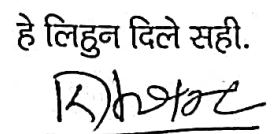 हे लिहुन दिले सही.